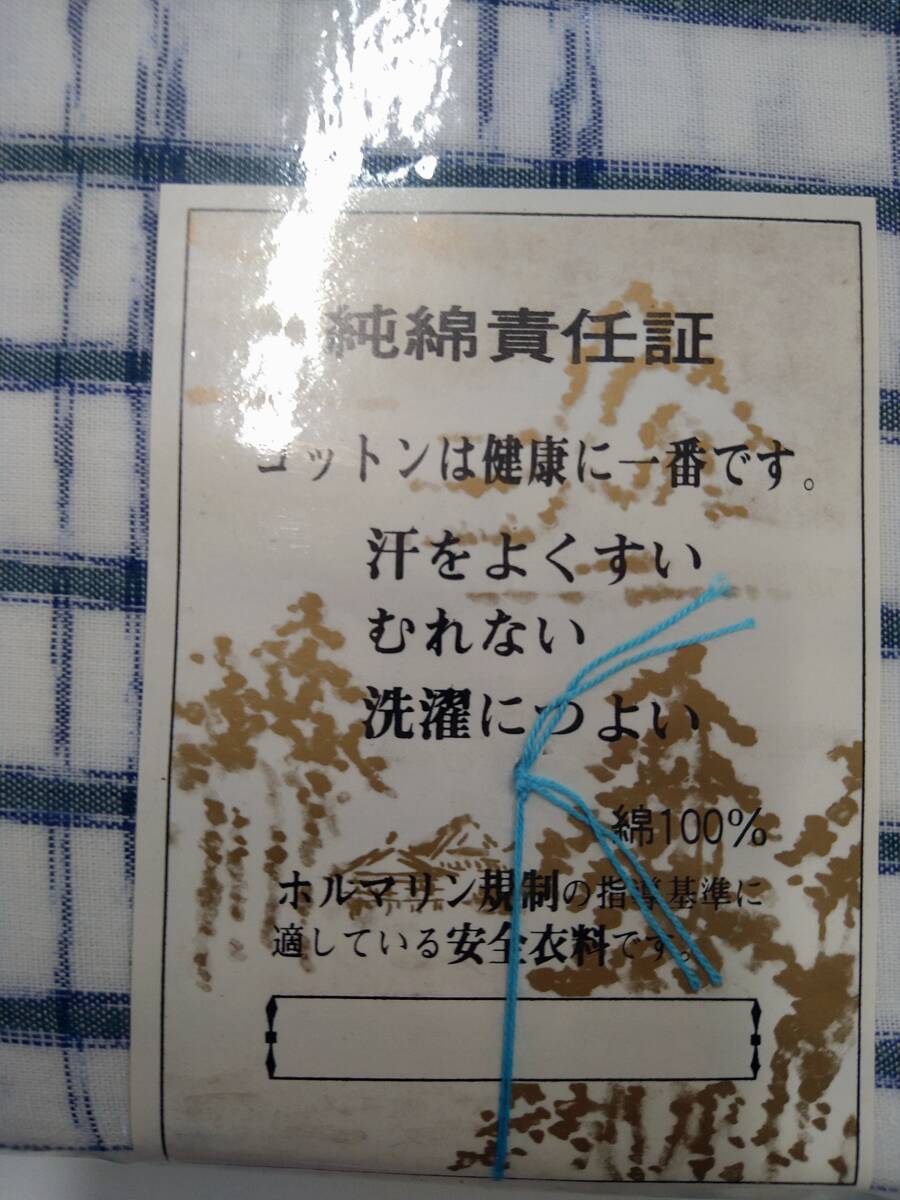 純綿責任証
コットンは健康に一番です。
汗をよくすい
むれない
洗濯につよい
綿100%
ホルマリン規制の指導基準に
適している安全衣料です。